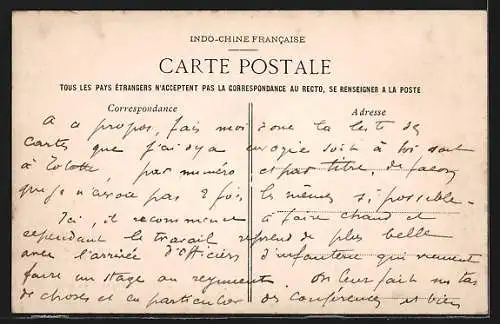 INDO-CHINE FRANÇAISE
CARTE POSTALE
TOUS LES PAYS ÉTRANGERS N'ACCEPTENT PAS LA CORRESPONDANCE AU RECTO, SE RENSEIGNER A LA POSTE
Correspondance
Adresse
A ce propos, fais moi donc la liste des
cartes que j'ai déjà envoyée soit à toi soit
à par numéro et par titre, de façon
que je n'envoie pas 2 fois les mêmes si possible.
Ici, il recommence à faire chaud et
cependant le travail reprend de plus belle
avec l'arrivée d'officiers d'infanterie qui viennent
faire un stage au régiment. On leur fait un tas
de choses et en particulier des conférences et bien